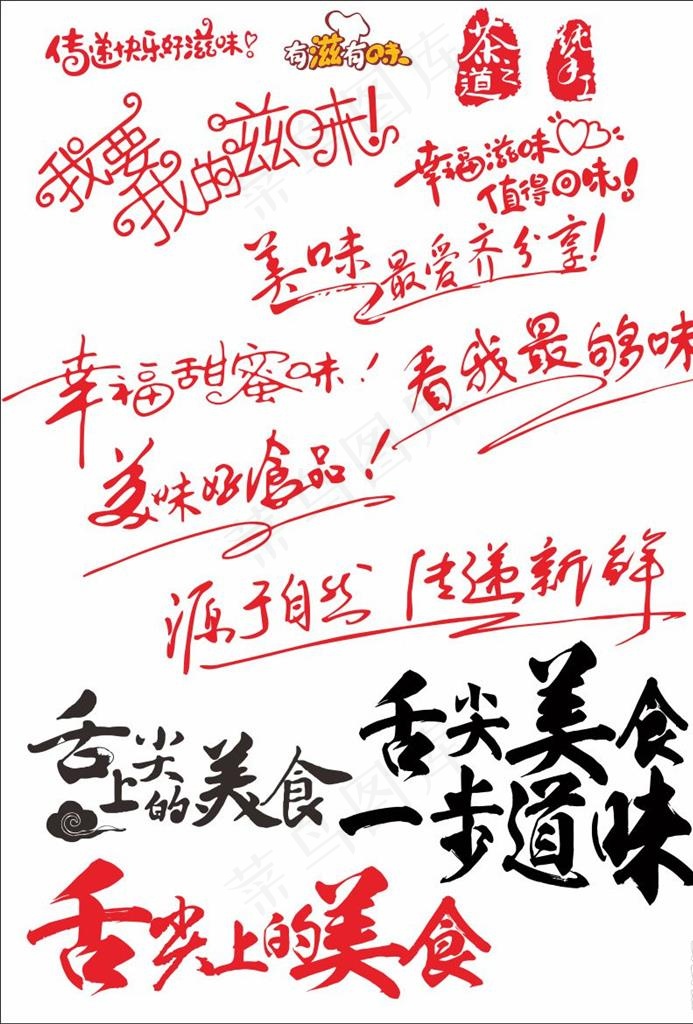 传递快乐好滋味
有滋有味
茶之道
纯手工
我要
我的滋味!
幸福滋味
值得回味!
美味最爱齐分享!
幸福甜蜜味!
看我最够味
美味好食品!
源于自然 传递新鲜
舌尖上的美食
舌尖美食
一步道味
舌尖上的美食
菜鸟图库